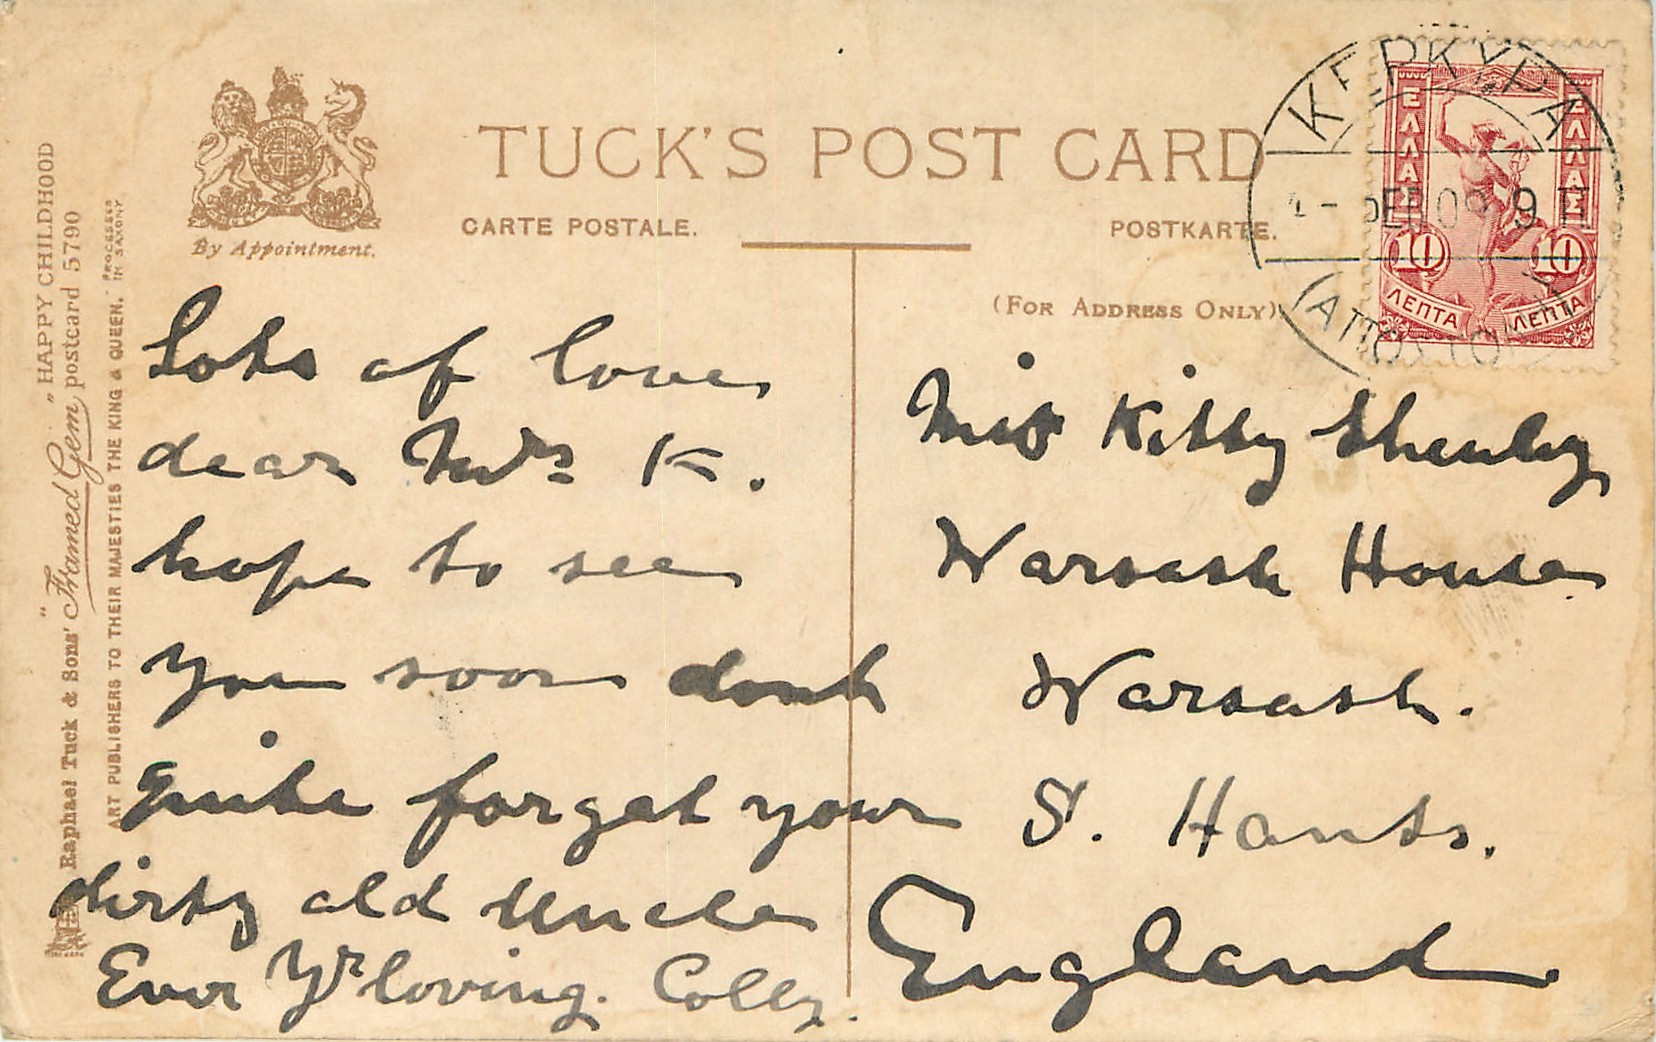 TUCK'S POST CARD
CARTE POSTALE.
POSTKARTE.
By Appointment.
(FOR ADDRESS ONLY)
"HAPPY CHILDHOOD"
Raphael Tuck & Sons' "Framed Gem" postcard 5790
ART PUBLISHERS TO THEIR MAJESTIES THE KING & QUEEN.
PROCESSED
IN SAXONY
ΚΕΡΚΥΡΑ
09 9 Π
ΕΛΛΑΣ
ΕΛΛΑΣ
10
10
ΛΕΠΤΑ
ΛΕΠΤΑ
Lots of love
dear Mrs K.
hope to see
you soon dont
quite forget your
dirty old Uncle
Ever Yr loving. Colly.
Miss Kitty Shenley
Warsash House
Warsash.
S. Hants.
England